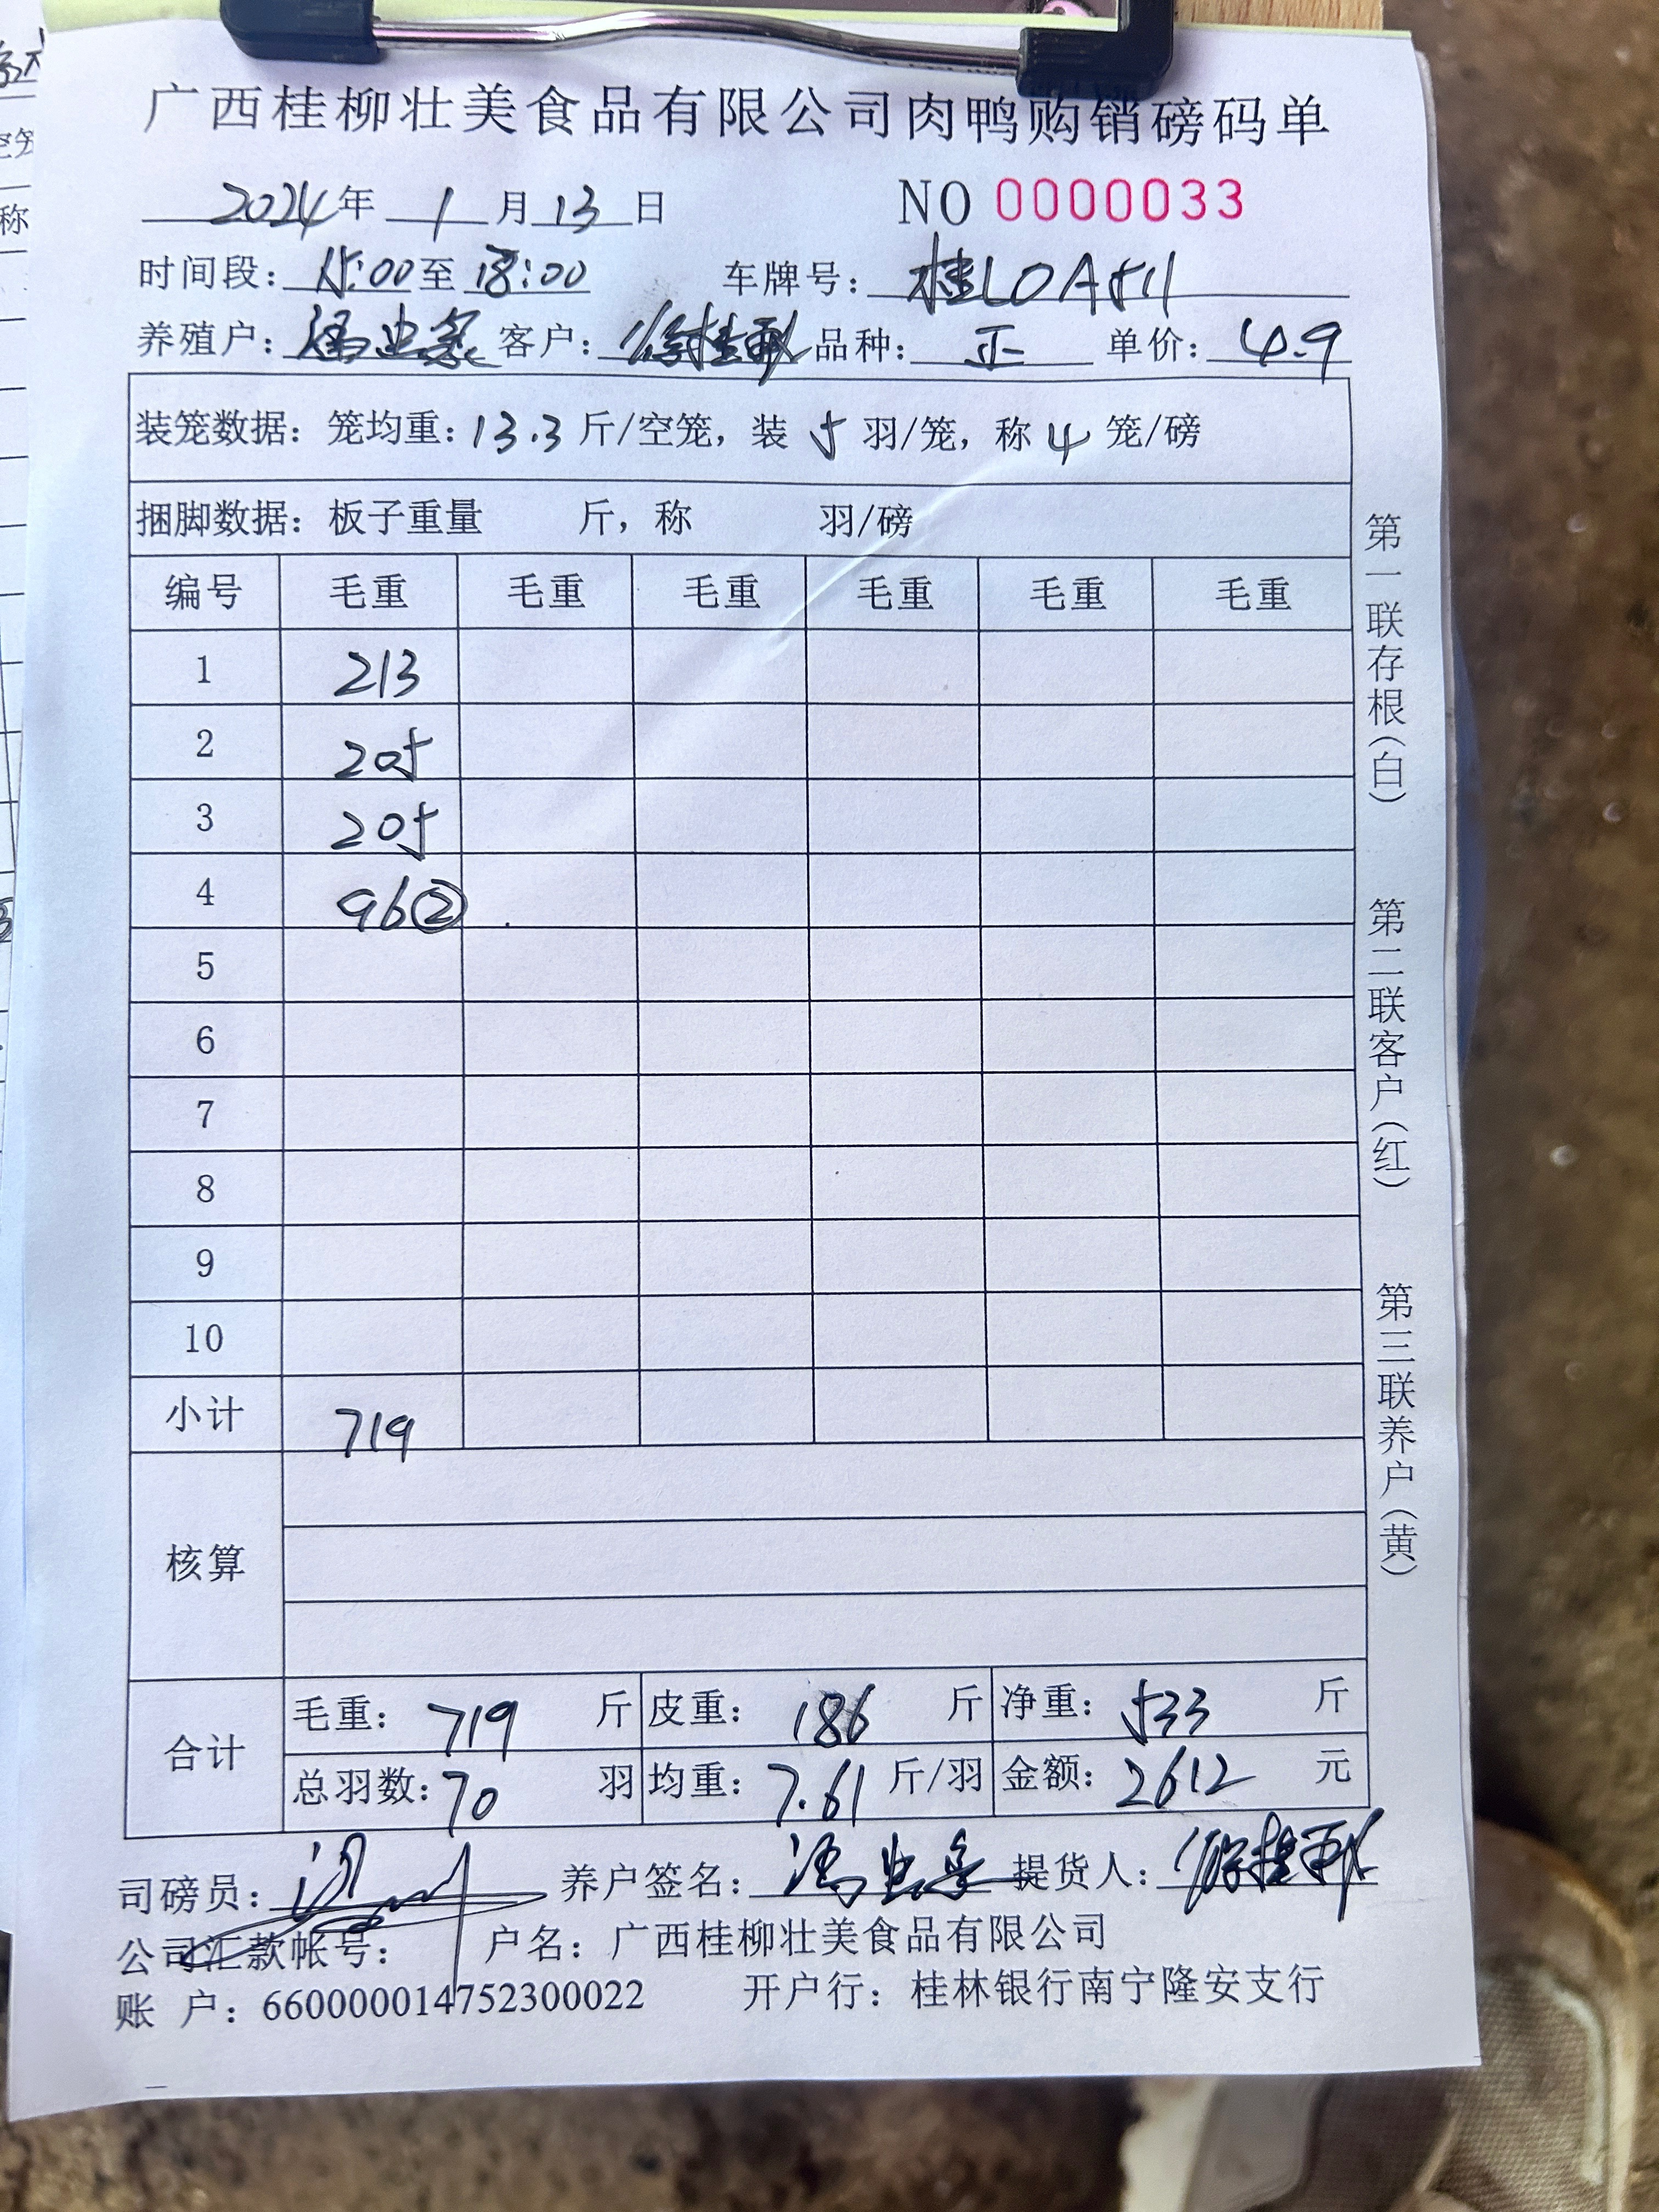 广西桂柳壮美食品有限公司肉鸭购销磅码单
2024年 1月13日 NO 0000033
时间段：15:00至18:00 车牌号：桂L0A511
养殖户：冯 客户：徐桂 品种：正 单价：4.9
装笼数据：笼均重：13.3斤/空笼，装 5 羽/笼，称 4 笼/磅
捆脚数据：板子重量 斤，称 羽/磅
编号 毛重 毛重 毛重 毛重 毛重 毛重
1 213
2 205
3 205
4 96②
5
6
7
8
9
10
小计 719
核算
合计 毛重：719 斤 皮重：186 斤 净重：533 斤
总羽数：70 羽 均重：7.61 斤/羽 金额：2612 元
司磅员： 养户签名：冯 提货人：徐桂
公司汇款帐号： 户名：广西桂柳壮美食品有限公司
账 户：660000014752300022 开户行：桂林银行南宁隆安支行
第一联存根（白）
第二联客户（红）
第三联养户（黄）